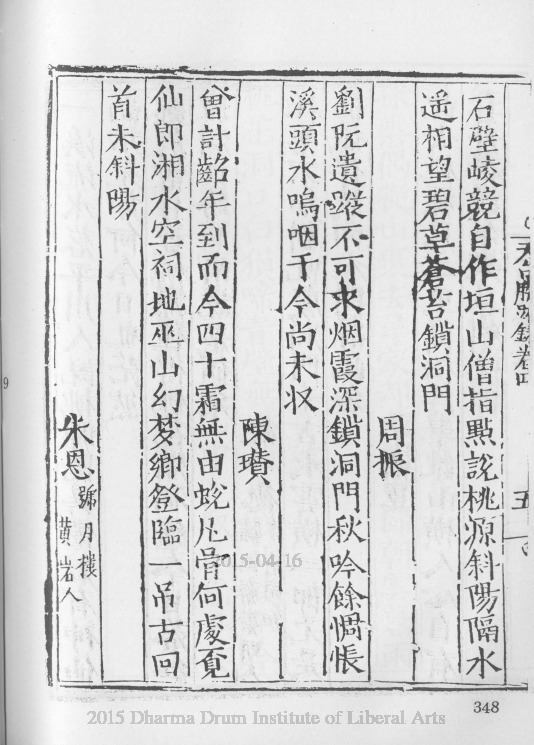 天台勝跡錄卷四
五
石壁崚競自作垣山僧指點說桃源斜陽隔水
遥相望碧草蒼苔鎖洞門
周振
劉阮遺蹤不可求烟霞深鎖洞門秋吟餘惆悵
溪頭水嗚咽于今尚未収
陳瓚
曾計齠年到而今四十霜無由蛻凡骨何處覓
仙郎湘水空祠地巫山幻梦鄉登臨一吊古回
首未斜陽
朱恩 號月樓
黃岩人
9
2015-04-16
348
2015 Dharma Drum Institute of Liberal Arts